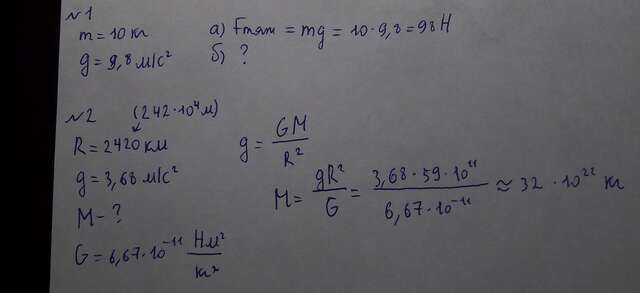 №1
m = 10 кг
g = 9,8 м/с²
а) Fтяж = mg = 10·9,8 = 98 Н
б) ?
№2
(242·10⁴м)
R = 2420 км
g = 3,68 м/с²
M - ?
G = 6,67·10⁻¹¹ Нм²/кг²
g = GM/R²
M = gR²/G = 3,68·59·10¹¹/6,67·10⁻¹¹ ≈ 32·10²² кг